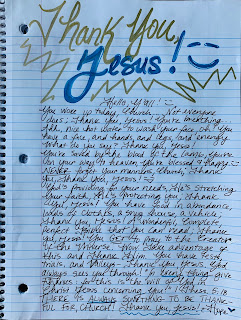 Thank You,
Jesus! :)
Hello, Y'all! :)
You woke up today, Church. Not everyone
does; Thank you, Jesus! You're breathing.
Ahh, nice hot water to wash your face, oh! You
have a face, and hands, and legs, and energy.
What do you say? Thank you, Jesus!
You're saved by the blood of the Lamb, you're
on your way to heaven, you're blessed & happy.
NEVER forget your manners, Church; Thank
You, Thank You, Jesus! :)
God's providing your needs, He's stretching
your faith, He's protecting you, Thank
you, Jesus! You have food in abundance,
loads of clothes, a snug home, a vehicle;
Thank you, Jesus! A wonderful, complete,
perfect Bible that you can read, Thank
you, Jesus! You GET to pray to the Creator
of the Universe. You take advantage of
this and Thank Him. You have tests,
trials, and things - Thank you, Jesus, God
always sees you through! "In every thing give
thanks: for this is the will of God in
Christ Jesus concerning you." 1 Thess 5:18
THERE IS ALWAYS SOMETHING TO BE THANK-
FUL FOR, CHURCH! Thank you, Jesus! :)